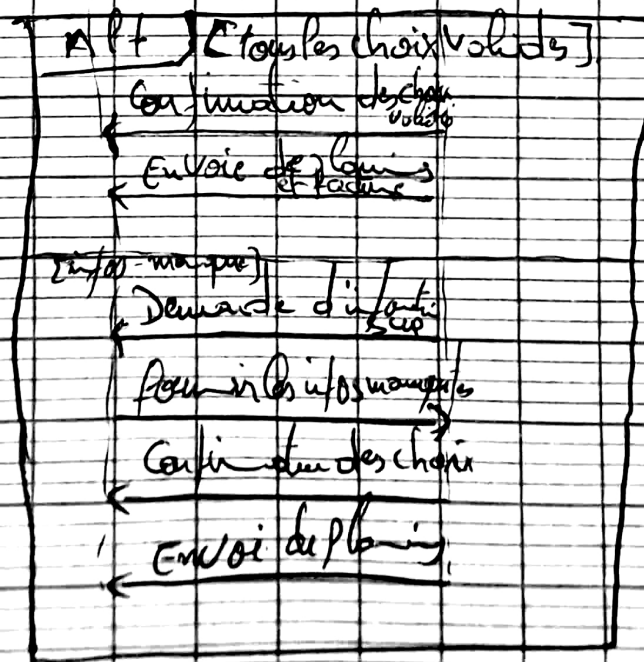 Alt [tous les choix valides]
Confirmation des choix
valides
Envoie de planing
et facture
[infos manque]
Demande d'infortio
sup
fournir les infos manquantes
Confirmation des choix
Envoi du planing